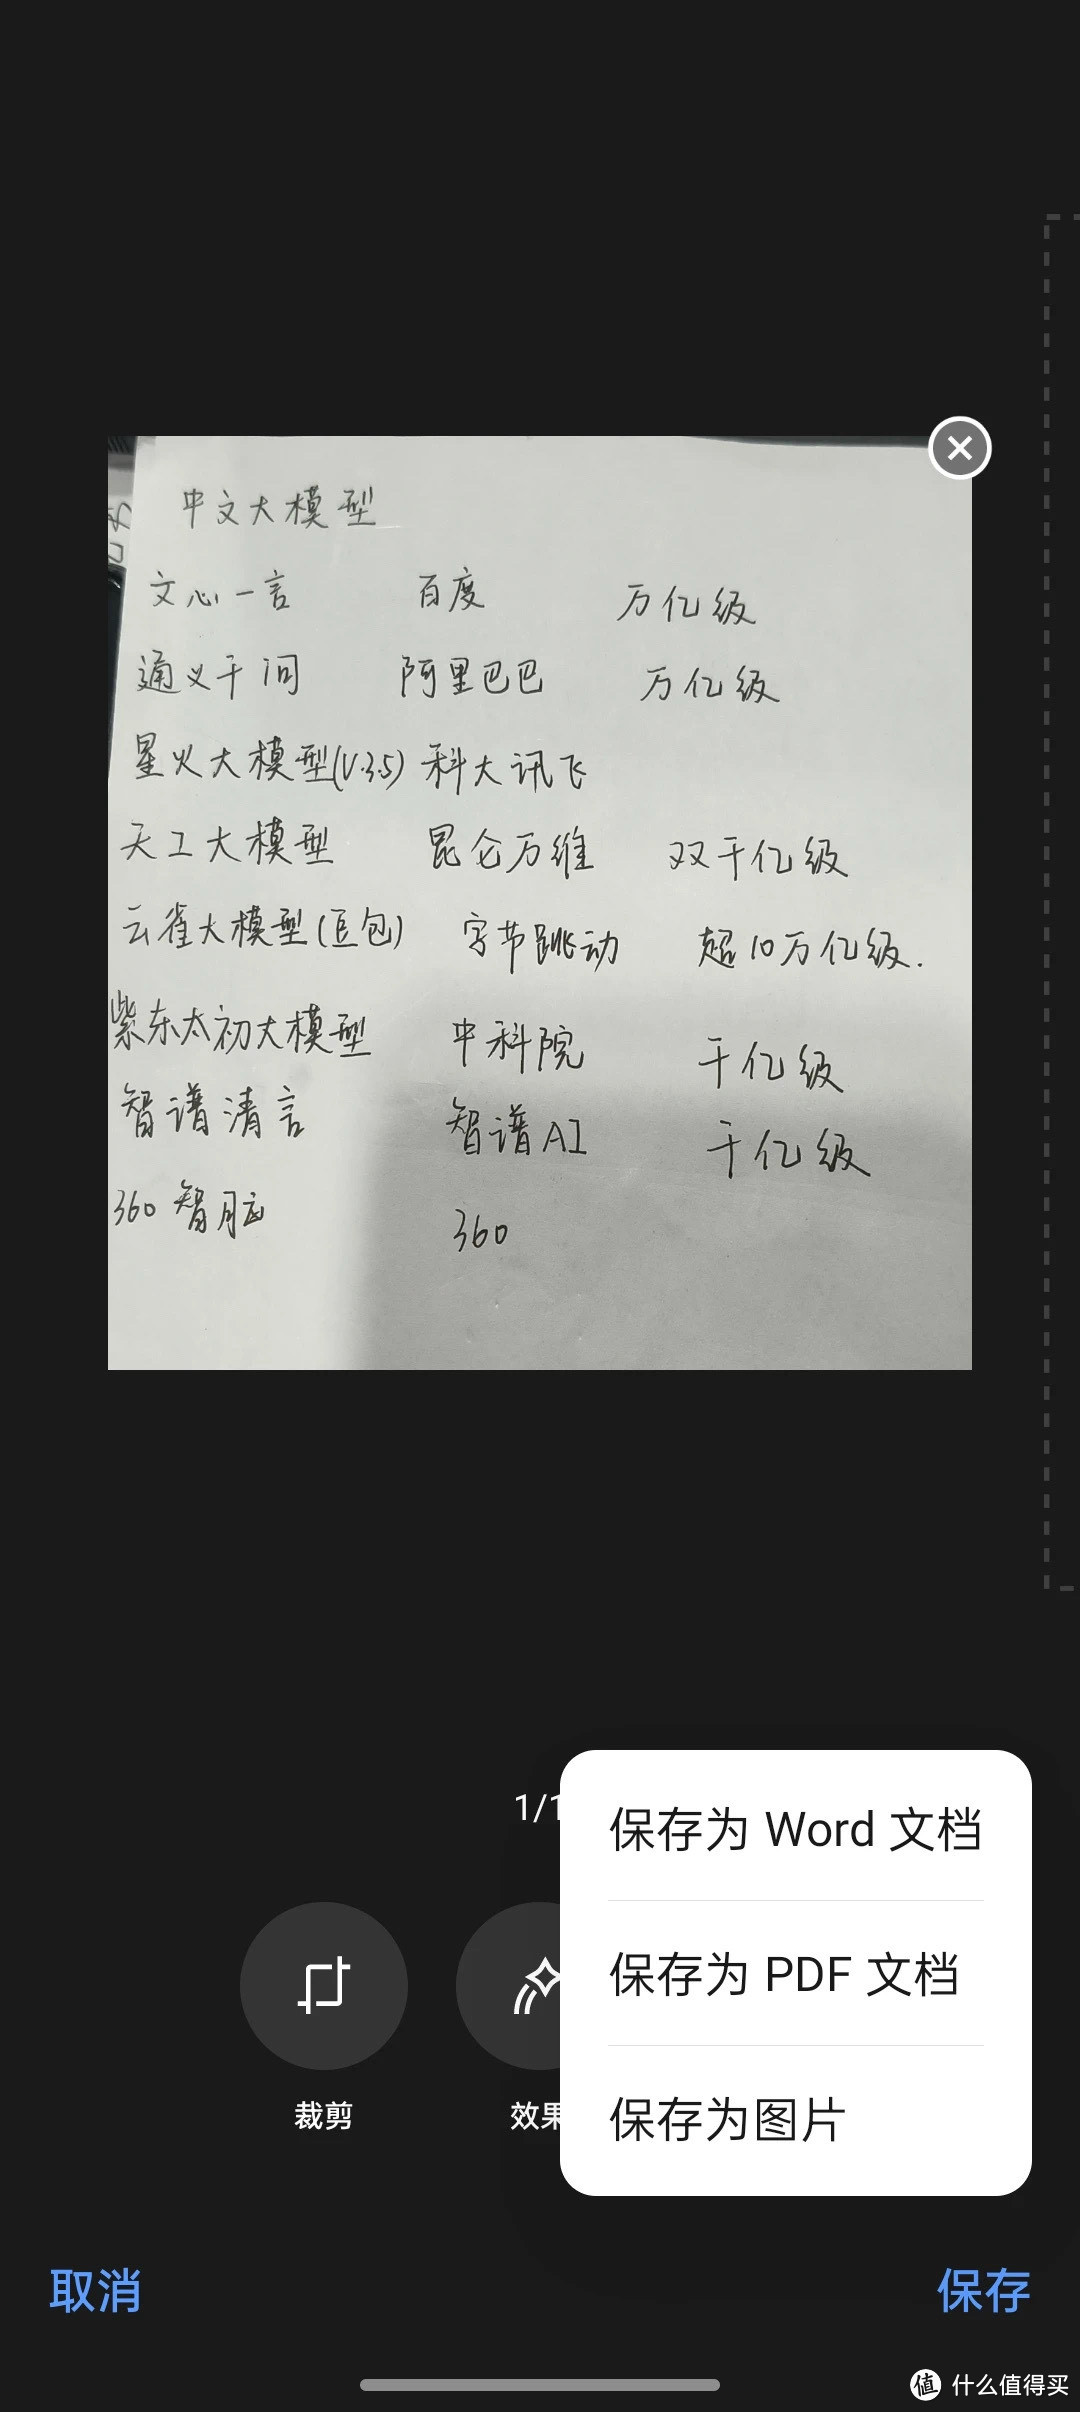 中文大模型
文心一言 百度 万亿级
通义千问 阿里巴巴 万亿级
星火大模型(V.3.5) 科大讯飞
天工大模型 昆仑万维 双千亿级
云雀大模型(豆包) 字节跳动 超10万亿级.
紫东太初大模型 中科院 千亿级
智谱清言 智谱AI 千亿级
360智脑 360
1/1
保存为 Word 文档
保存为 PDF 文档
保存为图片
裁剪 效果
取消 保存
值 什么值得买